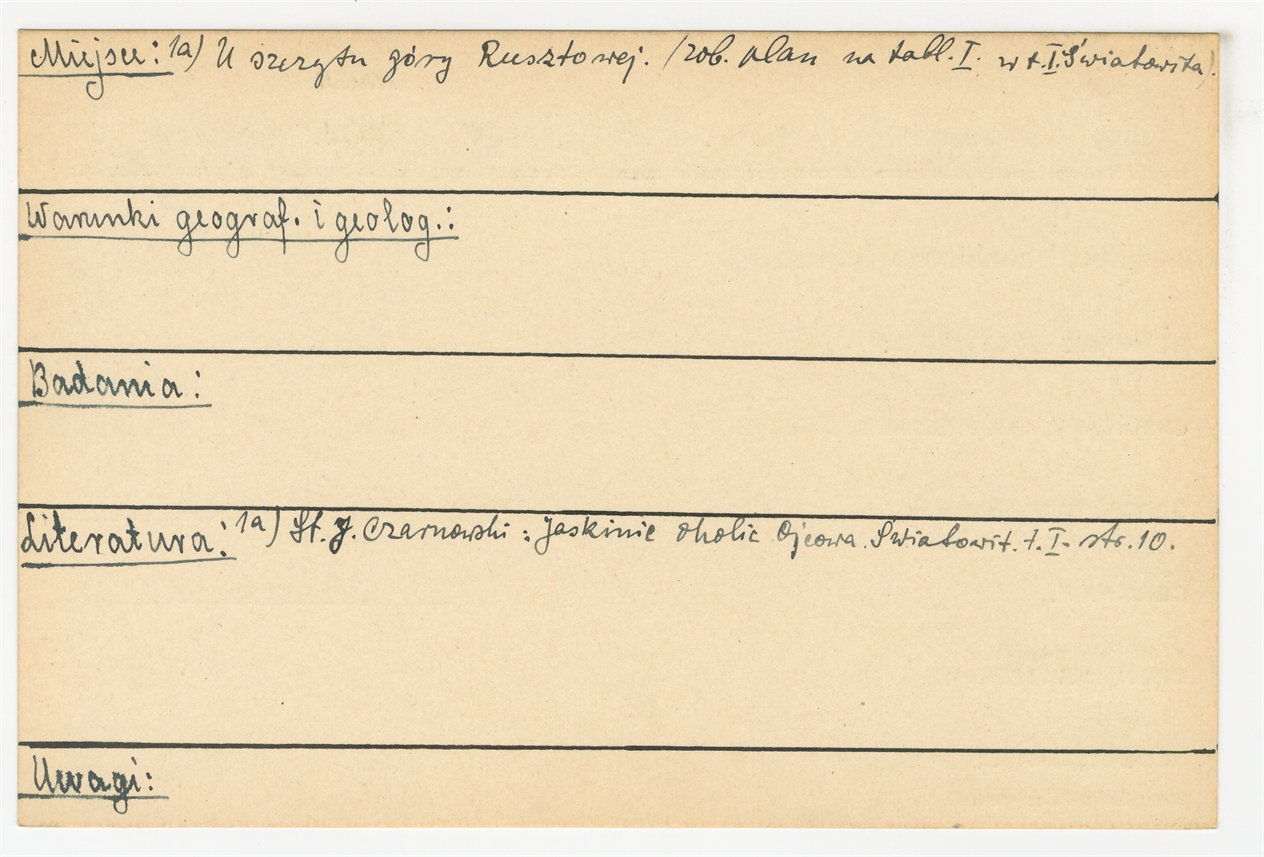 Miejsce: 1a) U szczytu góry Rusztowej. (zob. plan na tabl. I. w t. I. Światowita).
Warunki geograf. i geolog.:
Badania:
Literatura: 1a) St. J. Czarnowski: Jaskinie okolic Ojcowa. Światowit. t. I. str. 10.
Uwagi: